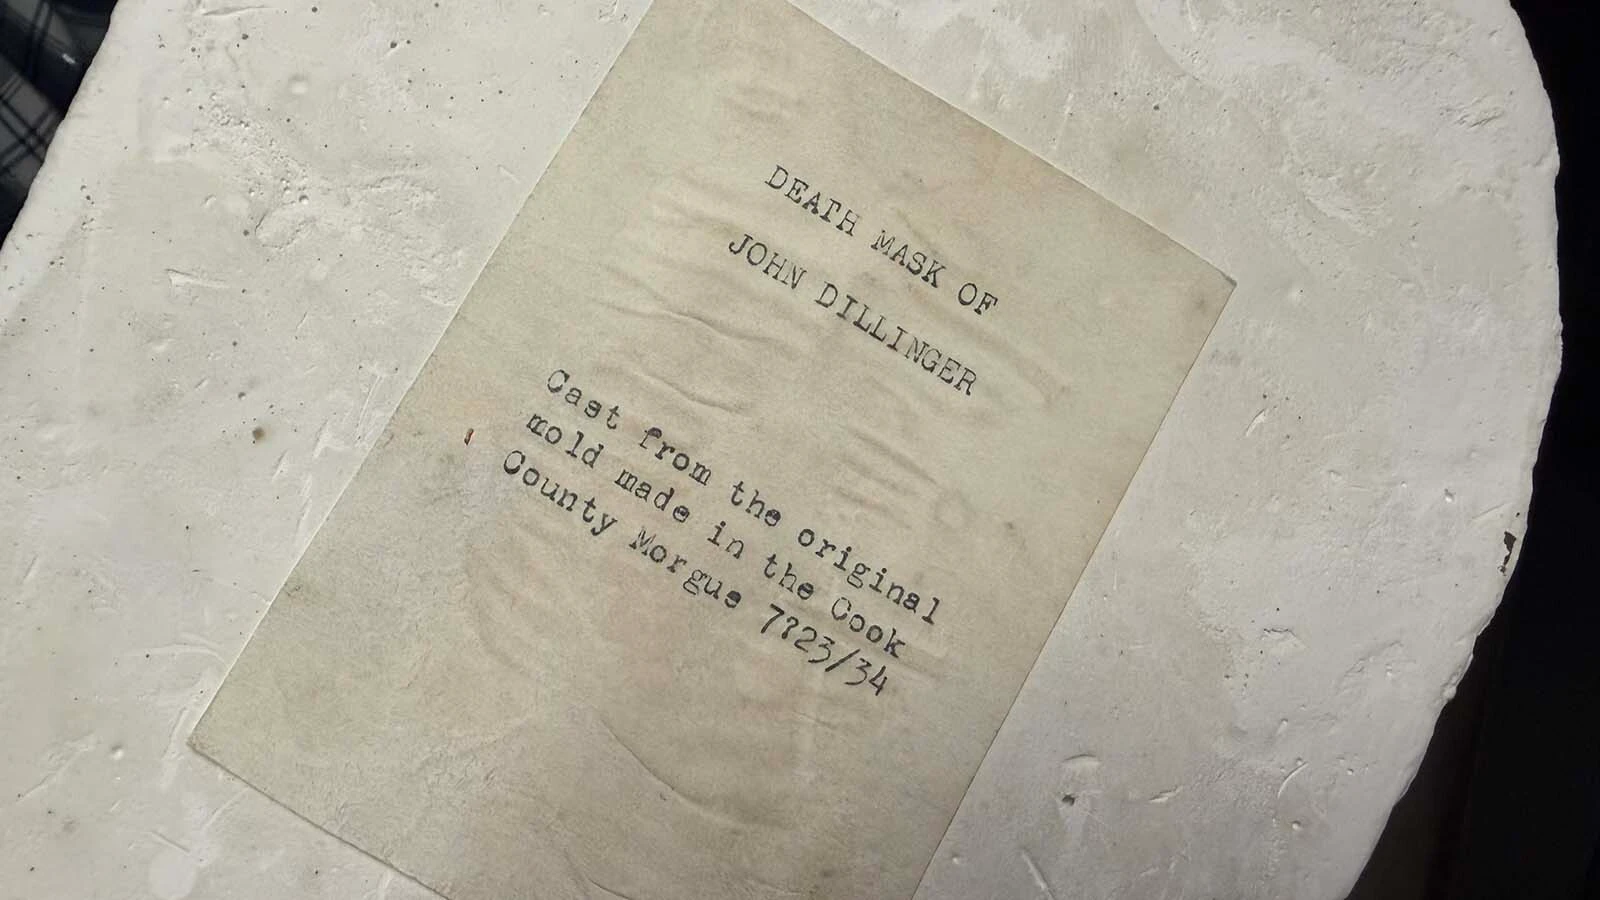 DEATH MASK OF
JOHN DILLINGER
Cast from the original
mold made in the Cook
County Morgue 7?23/34